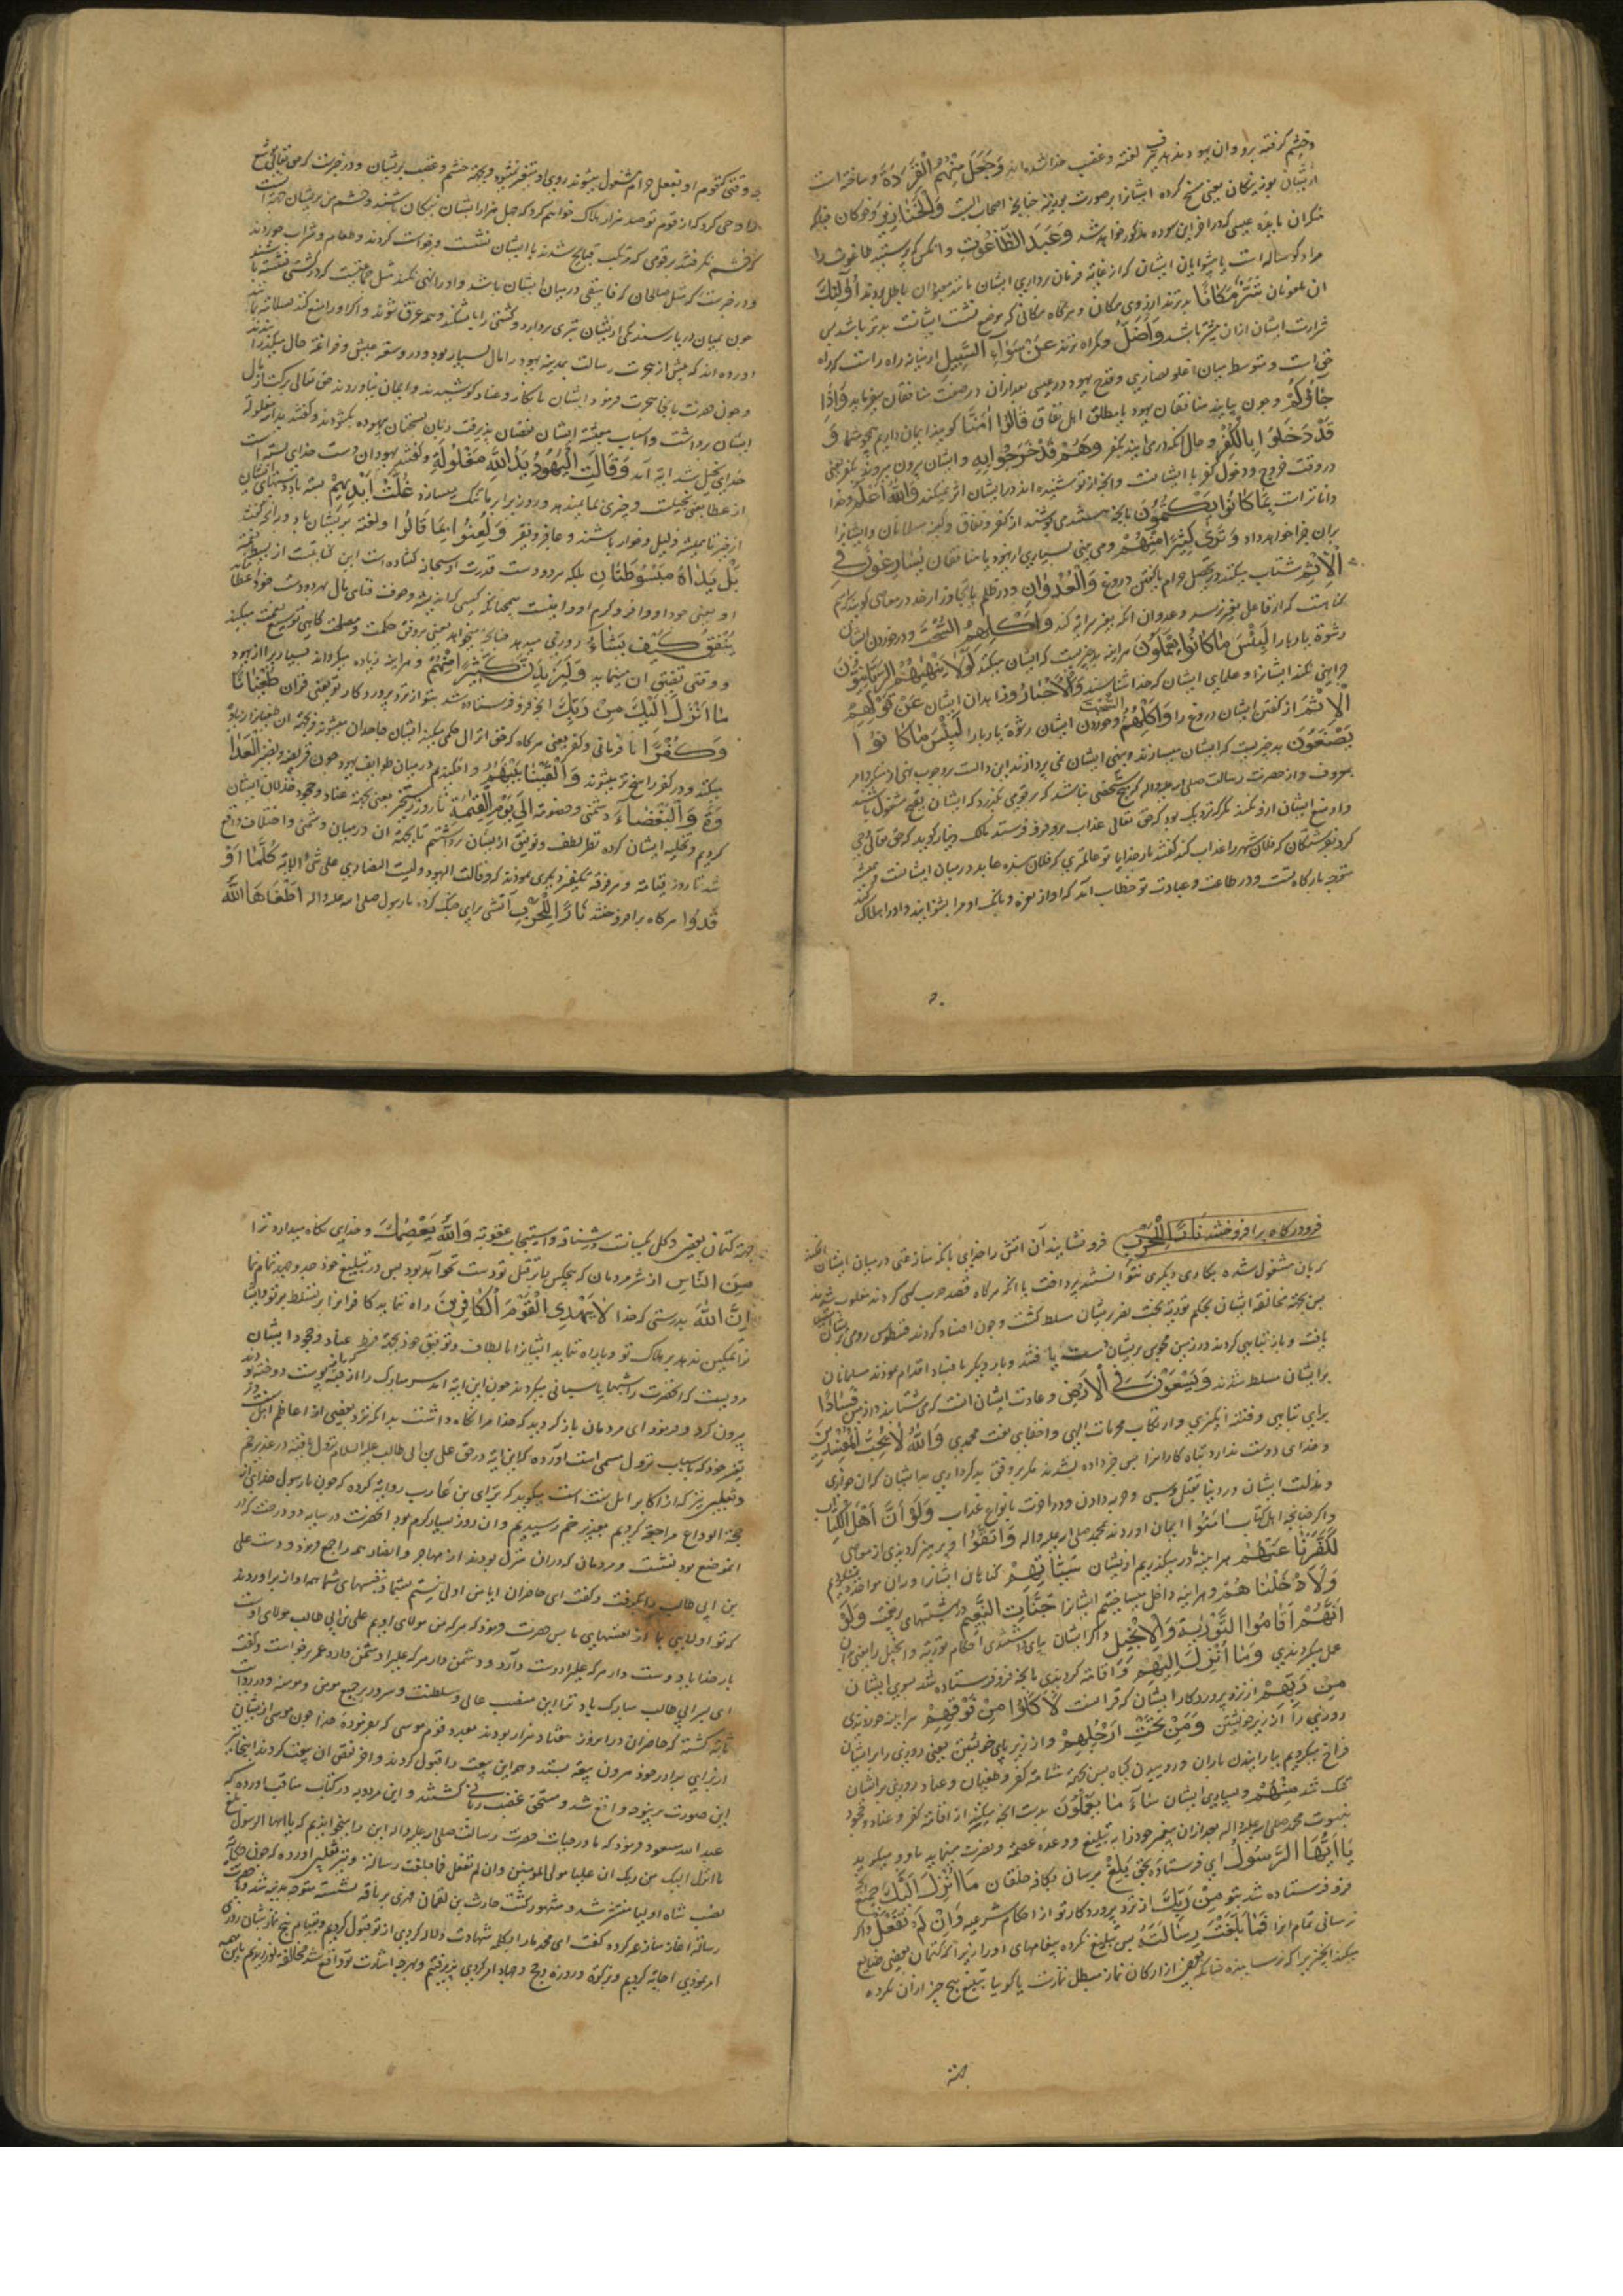 وخشم گرفته برو وان یهودند بدیشان لعنه و غضب خدا شده اند وَجَعَلَ مِنْهُمُ الْقِرَدَةَ و ساخته است
از ایشان بوزینگان یعنی مسخ کرده ایشانرا بر صورت بوزینه چنانچه اصحاب السبت وَالْخَنَازِيرَ و خوکان چنانکه
منکران مایده عیسی که در آخر این سوره مذکور خواهد شد وَعَبَدَ الطَّاغُوتَ و آنکس که پرستید طاغوت را
مراد گوساله است یا پیشوایان ایشان که از غایة فرمان برداری ایشان مانند معبودان باطل بودند أُولَئِكَ
ان ملعونان شَرٌّ مَكَانًا بدترند از روی مکان و هرگاه مکانی که موضع نشست ایشانست بدتر باشد پس
شرارت ایشان ازان بیشتر باشد وَأَضَلُّ و گمراه ترند عَنْ سَوَاءِ السَّبِيلِ از میانه راه راست که راه
حق است و متوسط میان غلو نصاری و قدح یهود در عیسی بعد ازان در صفت منافقان میفرماید وَإِذَا
جَاؤُكُمْ و چون بیایند منافقان یهود یا مطلق اهل نفاق قَالُوا آمَنَّا گویند ایمان داریم همچو شما وَ
قَدْ دَخَلُوا بِالْكُفْرِ و حال آنکه در می آیند بکفر وَهُمْ قَدْ خَرَجُوا بِهِ و ایشان بیرون میروند بکفر یعنی
در وقت خروج و دخول کفر با ایشانست و آنچه از تو شنیده اند در ایشان اثر نمیکند وَاللَّهُ أَعْلَمُ و خدا
داناتر است بِمَا كَانُوا يَكْتُمُونَ بانچه هستند می پوشند از کفر و نفاق و کینه مسلمانان و ایشانرا
بران جزا خواهد داد وَتَرَى كَثِيرًا مِنْهُمْ و می بینی بسیاری از یهود یا منافقان يُسَارِعُونَ فِي
الْإِثْمِ شتاب میکنند در تحصیل حرام یا گفتن دروغ وَالْعُدْوَانِ و در ظلم یا تجاوز از حد در معاصی گویند اثم
گناهست که از فاعل بغیر نرسد و عدوان آنکه بغیر سرایة کند وَأَكْلِهِمُ السُّحْتَ و در خوردن ایشان
رشوة یا ربا را لَبِئْسَ مَا كَانُوا يَعْمَلُونَ هر آینه بد چیزیست که ایشان میکنند لَوْلَا يَنْهَاهُمُ الرَّبَّانِيُّونَ
چرا نهی نکند ایشانرا و علمای ایشان که خدا شناسند وَالْأَحْبَارُ و زاهدان ایشان عَنْ قَوْلِهِمُ
الْإِثْمَ از گفتن ایشان دروغ را وَأَكْلِهِمُ السُّحْتَ و خوردن ایشان رشوة یا ربا را لَبِئْسَ مَا كَانُوا
يَصْنَعُونَ بد چیزیست که ایشان میسازند و بنهی ایشان نمی پردازند این دالست بر وجوب نهی از منکر و امر
بمعروف و از حضرت رسالت صلی الله علیه و اله که هیچ شخصی نباشد که بر قومی بگذرد که ایشان بقبح مشغول باشند
و او منع ایشان ازو نکند مگر که نزدیک بود که حق تعالی عذاب برو فرو فرستد مالک دینار گوید که حق تعالی وحی
کرد بفرشتگان که فلان شهر را عذاب کنند گفتند بار خدایا تو عالمتری که فلان بنده عابد در میان ایشانست و همیشه
متوجه بارگاه تست و در طاعت و عبادت تو خطاب آمد که آواز نعره و بانگ او مرا بشنوانید و او را هلاک کنید
چه وقتی که قوم او بفعل حرام مشغول میشوند روی او متغیر نمیشود و بجهة خشم و غضب بریشان و در خبرست که حق تعالی بیوشع
وحی کرد که از قوم تو صد هزار هلاک خواهم کرد که چهل هزار ایشان نیکان باشند و خشم من بریشان بجهة آنست
که خشم نگرفتند بر قومی که مرتکب قبایح شدند با ایشان نشست و برخواست کردند و طعام و شراب خوردند
و در خبرست که مثل صلحان که فاسقی در میان ایشان باشد و او را نهی نکنند مثل جماعتیست که در کشتی نشسته باشند
چون بمیان دریا رسند یکی از ایشان تبری بردارد و کشتی را بشکند و همه غرق شوند و اگر او را منع کنند بسلامت بمانند
آورده اند که پیش از هجرت رسالت بمدینه یهود را مال بسیار بود و در وسعة عیش و فراغة حال میگذرانیدند
و چون حضرت بانجا هجرت فرمود ایشان بانکار و عناد کوشیدند و ایمان نیاوردند حق تعالی برکت از مال
ایشان برداشت و اسباب معیشة ایشان نقصان پذیرفت زبان بسخنان بیهوده بگشودند و گفتند ید الله مغلولة
خدای بخیل شد آیة آمد وَقَالَتِ الْيَهُودُ يَدُ اللَّهِ مَغْلُولَةٌ و گفتند یهودان دست خدای بسته است
از عطا یعنی بخیلست و چیزی بما نمیدهد و روزی برابر ما تنگ میسازد غُلَّتْ أَيْدِيهِمْ بسته باد دستهای ایشان
از خیر تا همیشه ذلیل و خوار باشند و عاجز و فقیر وَلُعِنُوا بِمَا قَالُوا و لعنة بریشان باد بدانچه گفتند
بَلْ يَدَاهُ مَبْسُوطَتَانِ بلکه هر دو دست قدرت او سبحانه گشاده است این کنایتست از بسط نعمة
يُنْفِقُ كَيْفَ يَشَاءُ روزی میدهد چنانچه میخواهد یعنی بر وفق حکمت و مصلحت گاهی توسیع نعمت میکند
و وقتی تضییق آن مینماید وَلَيَزِيدَنَّ كَثِيرًا مِنْهُمْ و هر آینه زیاده میگرداند بسیاریرا از یهود
مَا أُنْزِلَ إِلَيْكَ مِنْ رَبِّكَ آنچه فرو فرستاده شد بتو از نزد پروردگار تو یعنی قران طُغْيَانًا
وَكُفْرًا نا فرمانی و کفر یعنی هرگاه که حق انزال حکمی میکند ایشان جاحدان میشوند و بجهة ان طغیان زیاده
میکنند و در کفر راسخ تر میشوند وَأَلْقَيْنَا بَيْنَهُمُ و افکندیم در میان طوایف یهود چون قریظه و نضیر الْعَدَا
وَةَ وَالْبَغْضَاءَ دشمنی و خصومة إِلَى يَوْمِ الْقِيَمَةِ تا روز رستخیز یعنی بجهة عناد و جحود خذلان ایشان
کردیم و تخلیه ایشان کرده نظر لطف و توفیق از ایشان برداشتیم تا بجهة ان در میان دشمنی و اختلاف واقع
شد تا روز قیامة و هر فرقه تکفیر دیگری نمودند که و قالت الیهود لیست النصاری علی شیء الایة كُلَّمَا أَوْ
قَدُوا هر گاه بر افروختند نَارًا لِلْحَرْبِ آتشی برای جنگ کردن با رسول صلی الله علیه و اله أَطْفَأَهَا اللَّهُ
فرو در گاه بر افروختند نَارًا لِلْحَرْبِ فرو نشانید آن آتش را خدای بانکه منازعتی در میان ایشان افکند
که بان مشغول شده بکاری دیگری نتوانستند پرداخت یا آنکه هرگاه قصد حرب کسی کردند مغلوب شدند
پس بجهة مخالفة ایشان بحکم توریة بخت نصر بریشان مسلط گشت و چون افساد کردند فطروس رومی بریشان تسلط
یافت و باز تباهی کردند و در زمین مجوسی بریشان دست یافتند و بار دیگر بافساد اقدام نمودند مسلمانان
بر ایشان مسلط شدند وَيَسْعَوْنَ فِي الْأَرْضِ و عادت ایشان انست که می شتابند در زمین فَسَادًا
برای تباهی و فتنه انگیزی و ارتکاب محرمات الهی و اخفای نعت محمدی وَاللَّهُ لَا يُحِبُّ الْمُفْسِدِينَ
و خدای دوست ندارد تباه کارانرا پس جزا داده نشدند مگر بر وفق بد کرداری بد ایشان که ان خواری
و مذلت ایشان در دنیا بقتل و سبی و جزیه دادن و در آخرت بانواع عذاب وَلَوْ أَنَّ أَهْلَ الْكِتَابِ
و اگر چنانچه اهل کتاب آمَنُوا ایمان اوردندی بمحمد صلی الله علیه واله وَاتَّقَوْا و پرهیز کردندی از معاصی
لَكَفَّرْنَا عَنْهُمْ هر آینه ما در میگذریم از ایشان سَيِّئَاتِهِمْ گناهان ایشانرا و ران مواخذه نمیکردیم
وَلَأَدْخَلْنَاهُمْ و هر آینه داخل میساختیم ایشانرا جَنَّاتِ النَّعِيمِ در بهشتهای پر نعمت وَلَوْ
أَنَّهُمْ أَقَامُوا التَّوْرَيةَ وَالْإِنْجِيلَ و اگر ایشان بپای داشتندی احکام توریة و انجیل را یعنی بان
عمل میکردندی وَمَا أُنْزِلَ إِلَيْهِمْ و اقامة کردندی بانچه فرو فرستاده شد بسوی ایشان
مِنْ رَبِّهِمْ از نزد پروردگار ایشان که قرانست لَأَكَلُوا مِنْ فَوْقِهِمْ هر اینه خوردندی
روزی را از زبر خویشتن وَمِنْ تَحْتِ أَرْجُلِهِمْ و از زیر پای خویش یعنی روزی را بر ایشان
فراخ میکردیم ببارانیدن باران و رویانیدن گیاه پس بجهة شامة کفر و طغیان و عناد روزی بر ایشان
تنگ شد مِنْهُمْ و بسیاری ایشان سَاءَ مَا يَعْمَلُونَ بدست آنچه میکنند از اقامة کفر و عناد و جحود
نبوت محمد صلی الله علیه واله بعد ازان پیغمبر خود را بر تبلیغ و وعده عصمة و نصرت مینماید باو و میگوید
يَا أَيُّهَا الرَّسُولُ ای فرستاده بحق بَلِّغْ برسان بکافه خلقان مَا أُنْزِلَ إِلَيْكَ جمیع آنچه
فرو فرستاده شد بتو مِنْ رَبِّكَ از نزد پروردگار تو از احکام شرعیه وَإِنْ لَمْ تَفْعَلْ و اگر
نرسانی تمام آنرا فَمَا بَلَّغْتَ رِسَالَتَهُ پس تبلیغ نکرده پیغامهای او را زیرا که کتمان بعضی ضایع
میکند آنچیز را که رسانیده چنانکه بعضی از ارکان نماز مبطل نمازست یا گویا تبلیغ هیچ چیز ازان نکرده
جهة
جهة کتمان بعضی و کل یکسانست در شناعة و استیجاب عقوبة وَاللَّهُ يَعْصِمُكَ و خدای نگاه میدارد ترا
مِنَ النَّاسِ از شر مردمان که هیچکس یارای قتل تو دست نخواهد بود پس در تبلیغ خود جد و جهد تمام نما
إِنَّ اللَّهَ بدرستی که خدا لَا يَهْدِي الْقَوْمَ الْكَافِرِينَ راه ننماید کافرانرا بر تسلط بر تو و ایشانرا
تمکین ندهد بر هلاک تو و یا راه ننماید ایشانرا بالطاف و توفیق خود بجهة فرط عناد و جحود ایشان
مرویست که آنحضرت را شبها پاسبانی میکردند چون این آیة آمد سر مبارک را از قبه پوست دوخته بود
بیرون کرد و فرمود ای مردمان باز گردید که خدا مرا نگاه داشت بدانکه نزد بعضی از اعاظم اهل سنت در
تفسیر خود که باسباب نزول مسمی است آورده که این آیة در حق علی بن ابی طالب علیه السلام نزول یافته در غدیر خم
و ثعلبی نیز که از اکابر اهل سنت است میگوید که برای بن عازب روایة کرده که چون با رسول خدای از
حجة الوداع مراجعة کردیم بغدیر خم رسیدیم و ان روز بسیار گرم بود آنحضرت در سایه دو درخت که در
انموضع بود بنشست و مردمان که دران منزل بودند از مهاجر و انصار همه را جمع فرمود و دست علی
بن ابی طالب را بگرفت و گفت ای حاضران ایا من اولی نیستم بشما از نفسهای شما همه آواز بر آوردند
که تو اولیی بما از نفسهای ما پس حضرت فرمود که هر که من مولای اویم علی بن ابی طالب مولای اوست
بار خدایا دوست دار هر که علیرا دوست دارد و دشمن دار هر که علیرا دشمن دارد عمر برخواست و گفت
ای پسر ابی طالب مبارک باد ترا این منصب عالی و سلطنت و سرور بر جمیع مومن و مومنه و در روایت
ثابته گشته که حاضران در انروز هفتاد هزار بودند بعدد قوم موسی که بفرموده خدا چون موسی از ایشان
از برای برادر خود هرون بیعة بستد و همه این بیعت را قبول کردند و اخر نقض ان بیعت کردند اینجا نیز
این صورت بر بیعة واقع شد و مستحق غضب ربانی گشتند و ابن مردویه در کتاب مناقب اورده که
عبد الله مسعود فرمود که ما در حیات حضرت رسالت صلی الله علیه واله این را میخواندیم که یا ایها الرسول بلغ
ما انزل الیک من ربک ان علیا مولی المومنین و ان لم تفعل فما بلغت رسالته و نیز ثعلبی اورده که چون حکایة
نصب شاه اولیا منتشر شد و مشهور گشت حارث بن نعمان فهری بر ناقه نشسته متوجه مدینه شد و با حضرت
رسالة اغاز منازعه کرده گفت ای محمد ما را بکلمه شهادت دلالت کردی از تو قبول کردیم و بقیام پنج نماز شبان روزی
امر نمودی اجابة کردیم و زکوة و روزه و حج و جهاد امر کردی پذیرفتیم و هر چه اشارت تو واقع شد مخالفة نورزیدیم باین همه